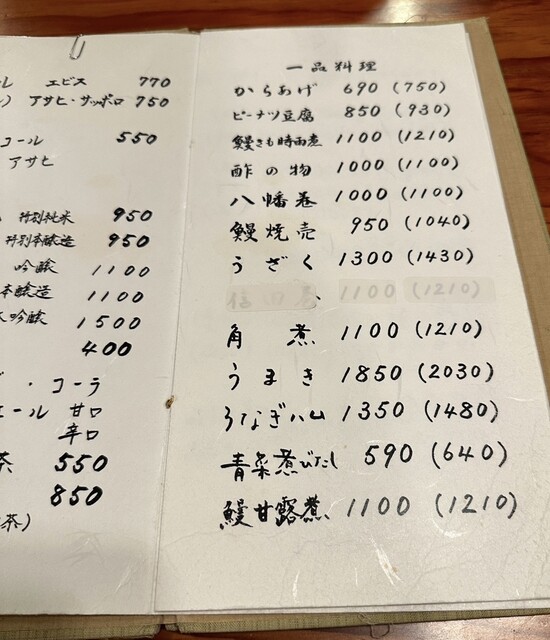 エビス 770
アサヒ・サッポロ 750
コール 550
アサヒ
特別純米 950
特別本醸造 950
吟醸 1100
本醸造 1100
吟醸 1500
400
・コーラ
エール 甘口
辛口
茶 550
850
茶)
一品料理
からあげ 690 (750)
ピーナツ豆腐 850 (930)
鰻きも時雨煮 1100 (1210)
酢の物 1000 (1100)
八幡巻 1000 (1100)
鰻焼売 950 (1040)
うざく 1300 (1430)
1100 (1210)
角煮 1100 (1210)
うまき 1850 (2030)
うなぎハム 1350 (1480)
青菜煮びたし 590 (640)
鰻甘露煮 1100 (1210)